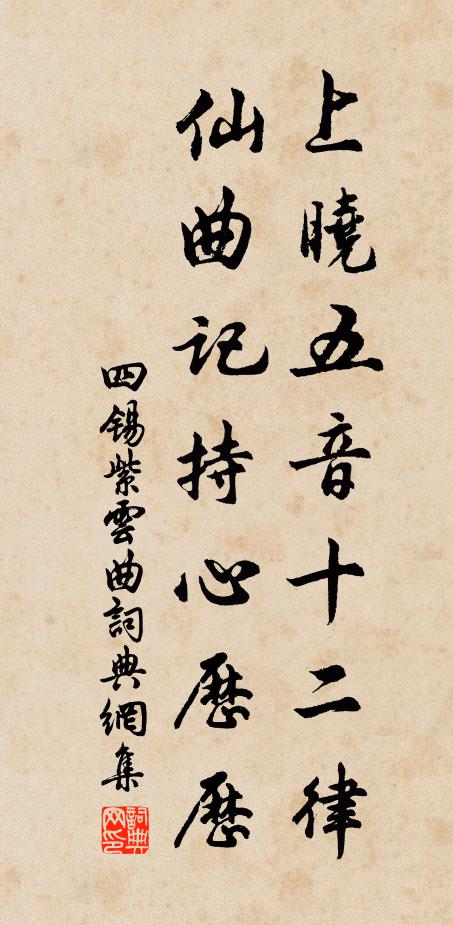 上曉五音十二律
仙曲記持心歷歷
四錫紫雲曲詞典網集
詞典网印